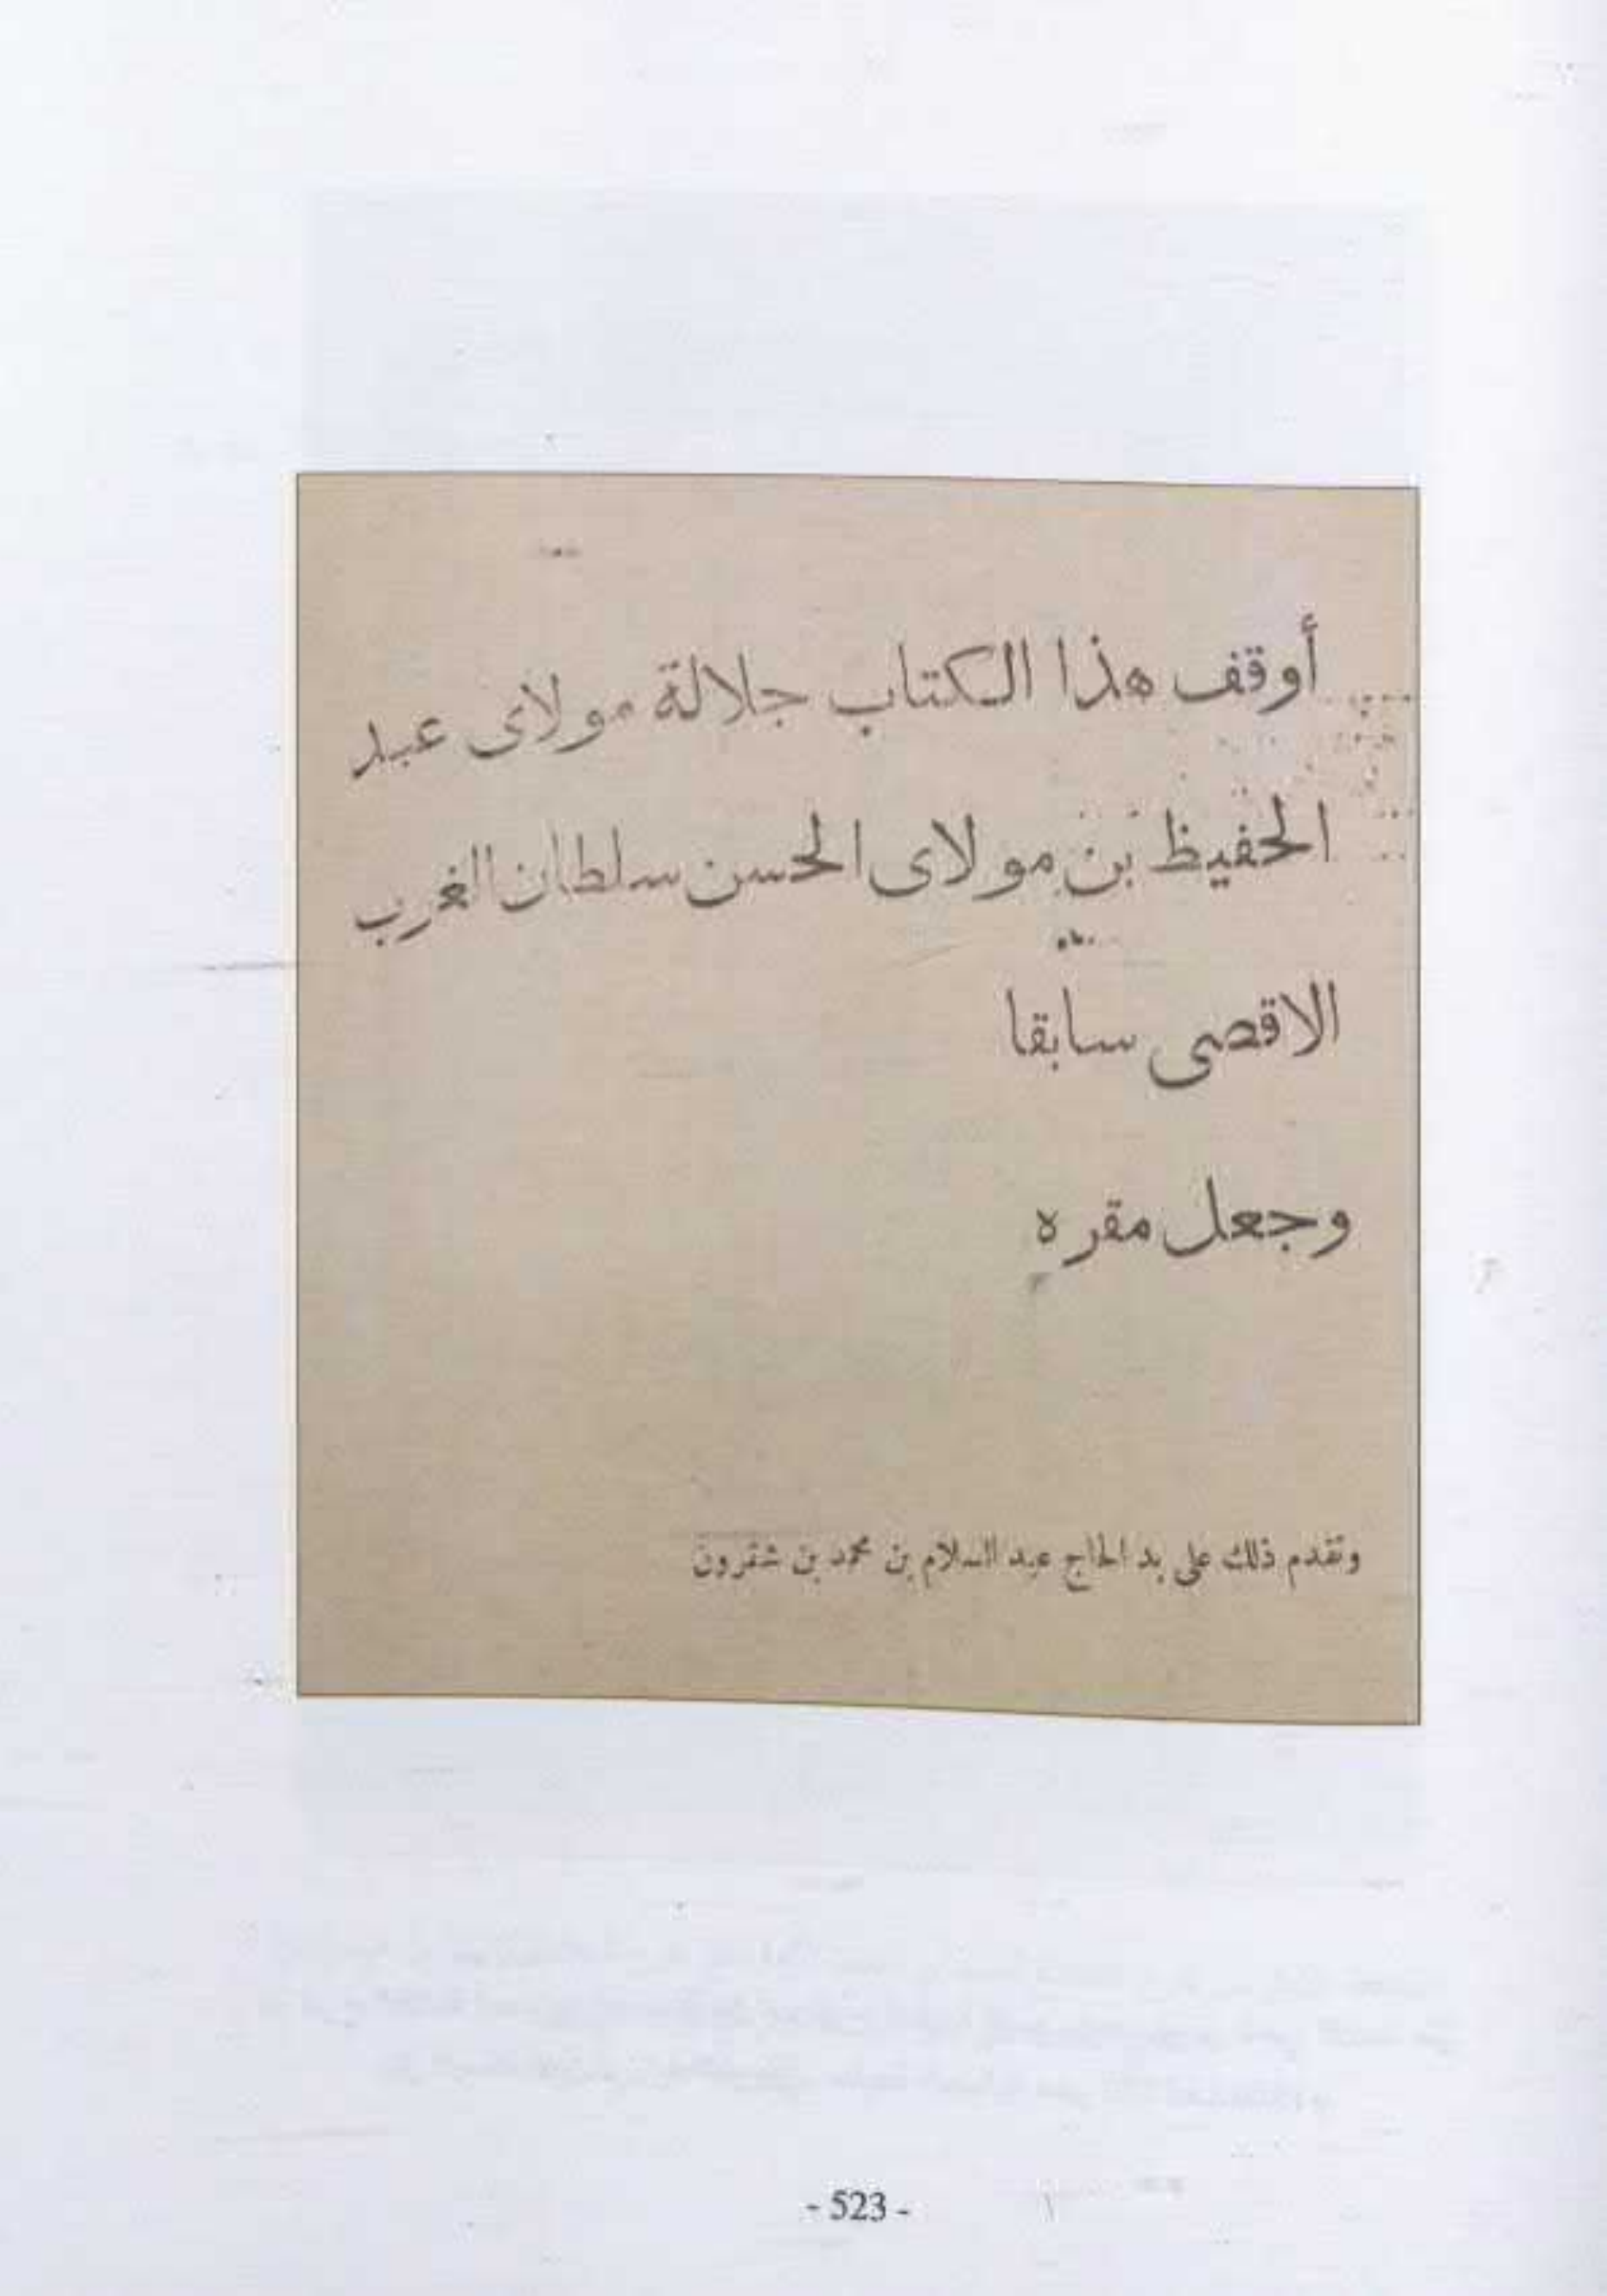 أوقف هذا الكتاب جلالة مولاى عبد
الحفيظ بن مولاى الحسن سلطان الغرب
الاقصى سابقا
وجعل مقره
وتقدم ذلك على يد الحاج عبد السلام بن محمد بن شقرون
- 523 -